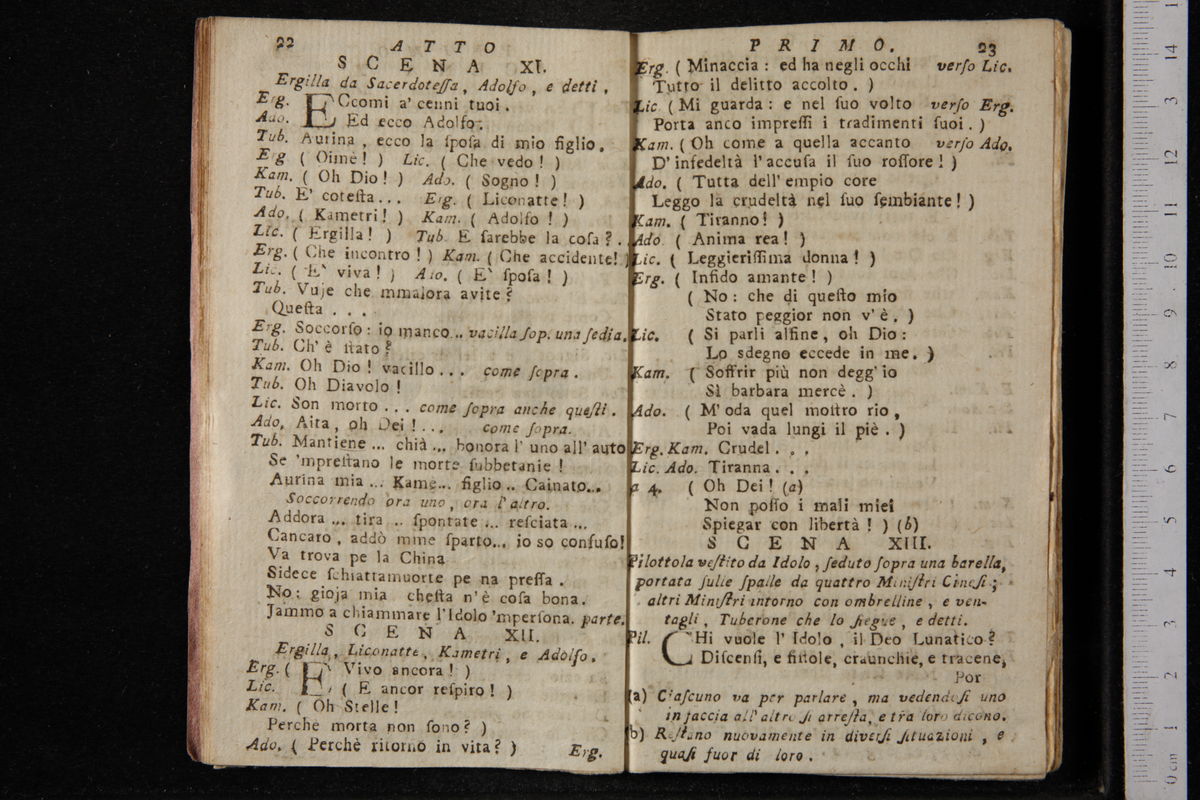 22 A T T O
S C E N A XI.
Ergilla da Sacerdoteſſa, Adolfo, e detti.
Erg. ECcomi a' cenni tuoi.
Ado. Ed ecco Adolfo.
Tub. Aurina, ecco la ſpoſa di mio figlio.
Erg. ( Oimè! ) Lic. ( Che vedo! )
Kam. ( Oh Dio! ) Ado. ( Sogno! )
Tub. E' coteſta... Erg. ( Liconatte! )
Ado. ( Kametri! ) Kam. ( Adolfo! )
Lic. ( Ergilla! ) Tub. E ſarebbe la coſa?..
Erg. ( Che incontro! ) Kam. ( Che accidente! )
Lic. ( E' viva! ) Ado. ( E' ſpoſa! )
Tub. Vuje che mmalora avite?
Queſta . . .
Erg. Soccorſo: io manco.. vacilla ſop. una ſedia.
Tub. Ch' è ſtato?
Kam. Oh Dio! vacillo... come ſopra.
Tub. Oh Diavolo!
Lic. Son morto . . . come ſopra anche queſti.
Ado. Aita, oh Dei!... come ſopra.
Tub. Mantiene... chià... honora l' uno all' auto
Se 'mpreſtano le morte ſubbetanie!
Aurina mia... Kame... figlio.. Cainato...
Soccorrendo ora uno, ora l' altro.
Addora... tira.. ſpontate... reſciata...
Cancaro, addò mme ſparto... io so confuſo!
Va trova pe la China
Sidece ſchiattamuorte pe na preſſa.
No: gioja mia cheſta n' è coſa bona.
Jammo a chiammare l' Idolo 'mperſona. parte.
S C E N A XII.
Ergilla, Liconatte, Kametri, e Adolfo.
Erg. ( E' Vivo ancora! )
Lic. ( E ancor reſpiro! )
Kam. ( Oh Stelle!
Perchè morta non ſono? )
Ado. ( Perchè ritorno in vita? )
Erg.
P R I M O. 23
Erg. ( Minaccia: ed ha negli occhi verſo Lic.
Tutto il delitto accolto. )
Lic ( Mi guarda: e nel ſuo volto verſo Erg.
Porta anco impreſſi i tradimenti ſuoi. )
Kam. ( Oh come a quella accanto verſo Ado.
D' infedeltà l' accuſa il ſuo roſſore! )
Ado. ( Tutta dell' empio core
Leggo la crudeltà nel ſuo ſembiante! )
Kam. ( Tiranno! )
Ado. ( Anima rea! )
Lic. ( Leggieriſſima donna! )
Erg. ( Infido amante! )
( No: che di queſto mio
Stato peggior non v' è. )
Lic. ( Si parli alfine, oh Dio:
Lo sdegno eccede in me. )
Kam. ( Soffrir più non degg' io
Sì barbara mercè. )
Ado. ( M' oda quel moſtro rio,
Poi vada lungi il piè. )
Erg. Kam. Crudel . . .
Lic. Ado. Tiranna . . .
a 4. ( Oh Dei! (a)
Non poſſo i mali miei
Spiegar con libertà! ) (b)
S C E N A XIII.
Pilottola veſtito da Idolo, ſeduto ſopra una barella,
portata ſulle ſpalle da quattro Miniſtri Cineſi;
altri Miniſtri intorno con ombrelline, e ven-
tagli, Tuberone che lo ſiegue, e detti.
Pil. CHi vuole l' Idolo, il Deo Lunatico?
Diſcenſi, e fiſtole, craunchie, e tracene,
Por
(a) Ciaſcuno va per parlare, ma vedendoſi uno
in faccia all' altro ſi arreſta, e tra loro dicono.
(b) Reſtano nuovamente in diverſi ſituazioni, e
quaſi fuor di loro.